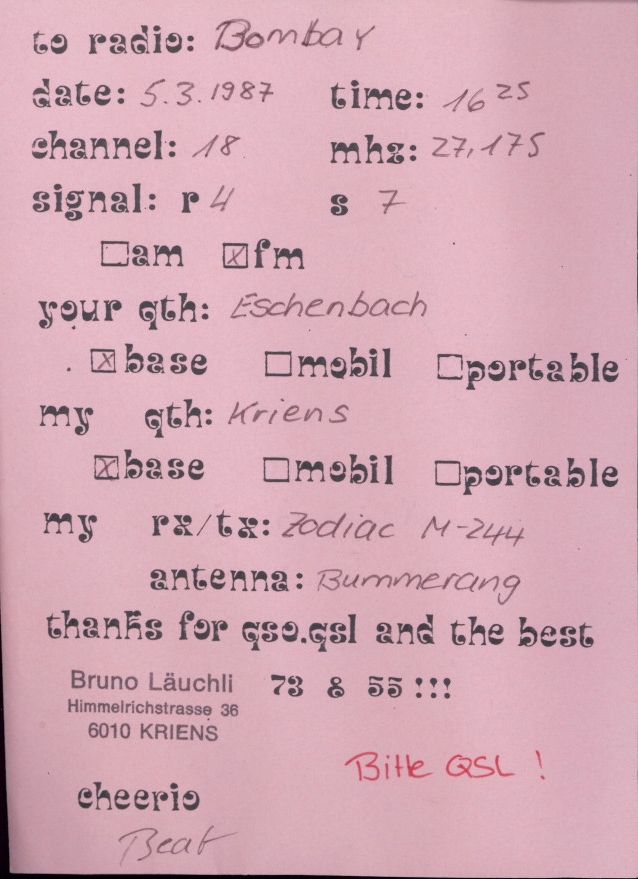 to radio: Bombay
date: 5.3.1987 time: 16 25
channel: 18 mhz: 27,175
signal: r 4 s 7
☐am ☒fm
your qth: Eschenbach
☒base ☐mobil ☐portable
my qth: Kriens
☒base ☐mobil ☐portable
my rx/tx: Zodiac M-244
antenna: Bummerang
thanks for qso.qsl and the best
73 & 55 !!!
Bruno Läuchli
Himmelrichstrasse 36
6010 KRIENS
Bitte QSL !
cheerio
Beat